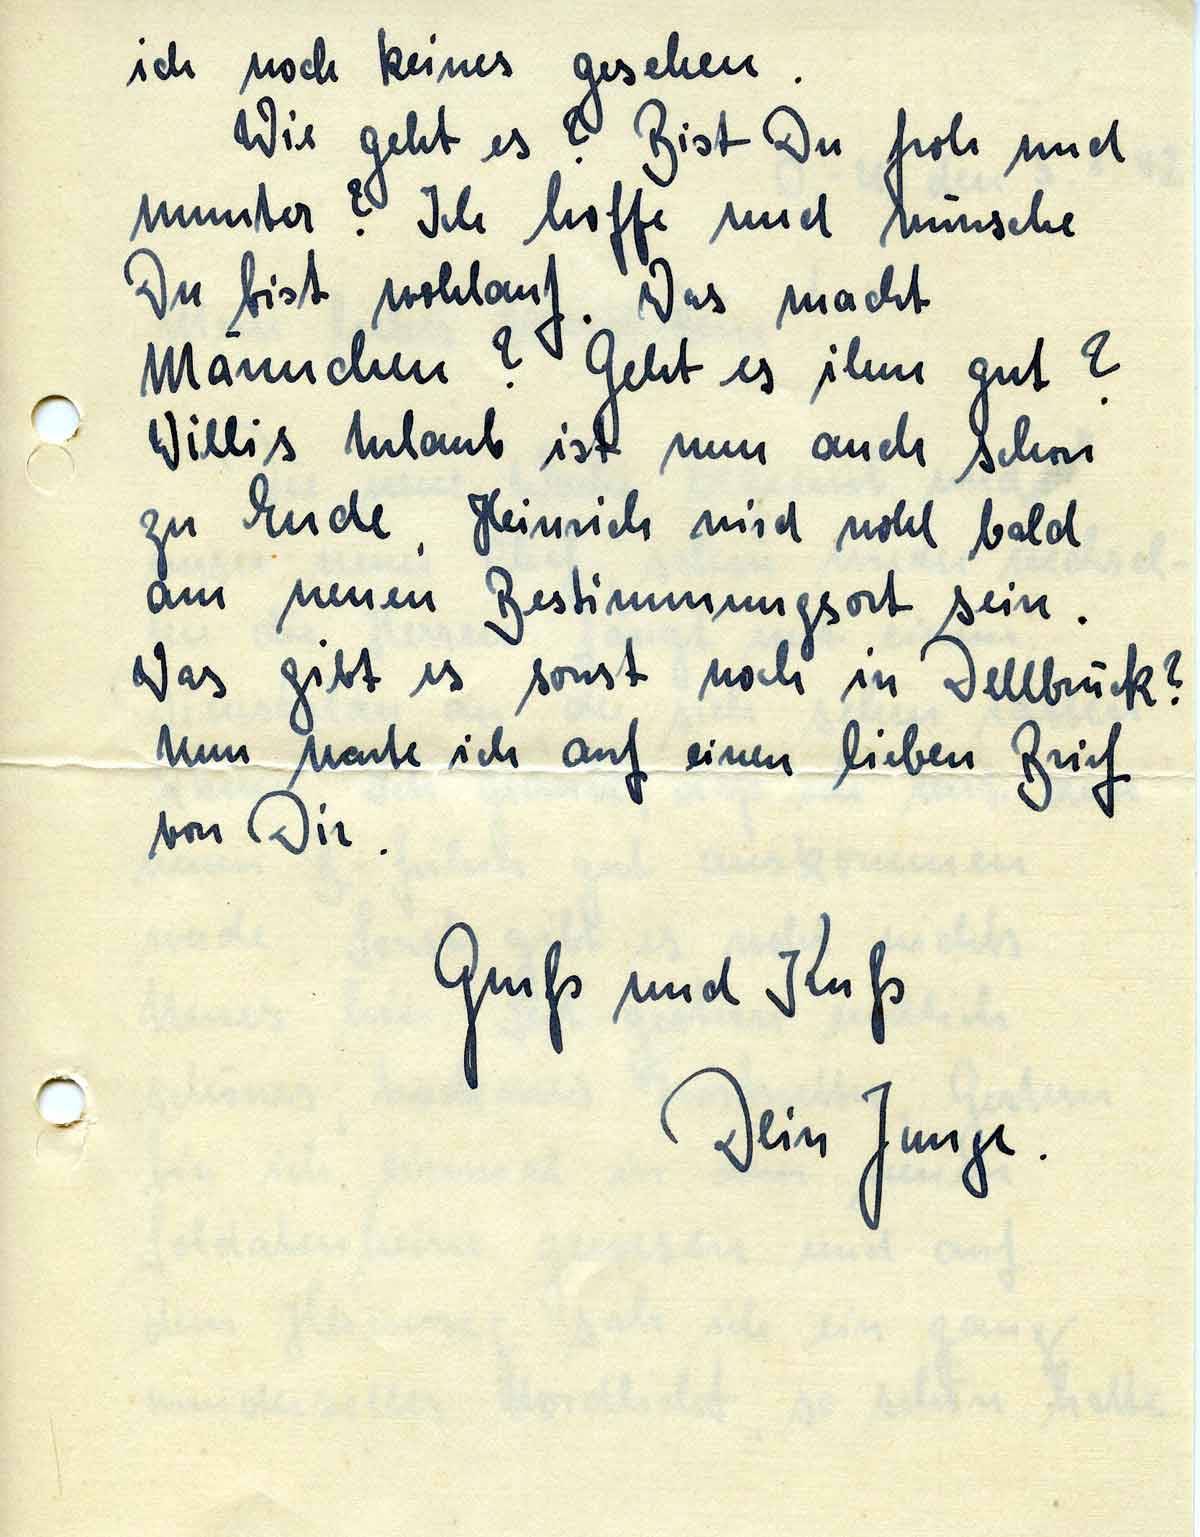 ich noch keines gesehen.
Wie geht es? Bist Du froh und
munter? Ich hoffe und wünsche
Du bist wohlauf. Was macht
Männchen? Geht es ihm gut?
Willis Urlaub ist nun auch schon
zu Ende, Heinrich wird wohl bald
am neuen Bestimmungsort sein.
Was gibt es sonst noch in Dellbrück?
Nun warte ich auf einen lieben Brief
von Dir.
Gruß und Kuß
Dein Junge.